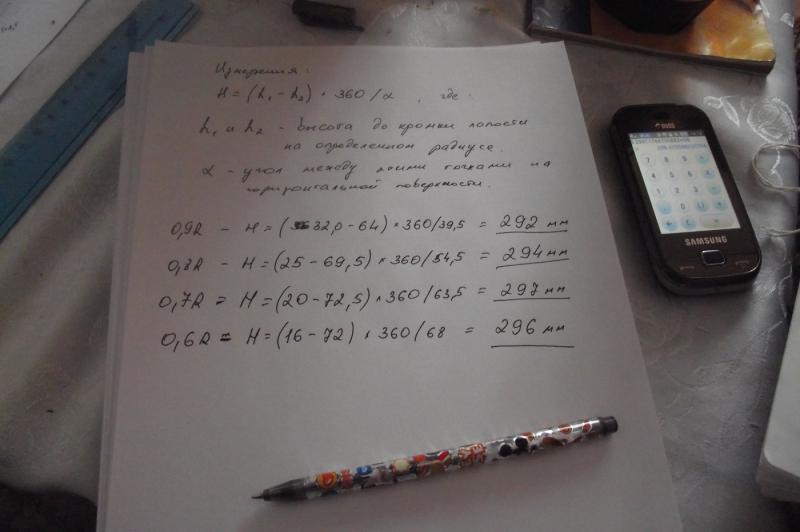 Измерения:
H = (h₁ - h₂) × 360 / α , где
h₁ и h₂ - высота до кромки лопасти
на определенном радиусе.
α - угол между этими точками на
горизонтальной поверхности.
0,9R - H = (32,0 - 64) × 360/39,5 = 292 мм
0,8R - H = (25 - 69,5) × 360/54,5 = 294 мм
0,7R = H = (20 - 72,5) × 360/63,5 = 297 мм
0,6R = H = (16 - 72) × 360/68 = 296 мм
DUOS
7 8 9
4 5 6
1 2 3
SAMSUNG